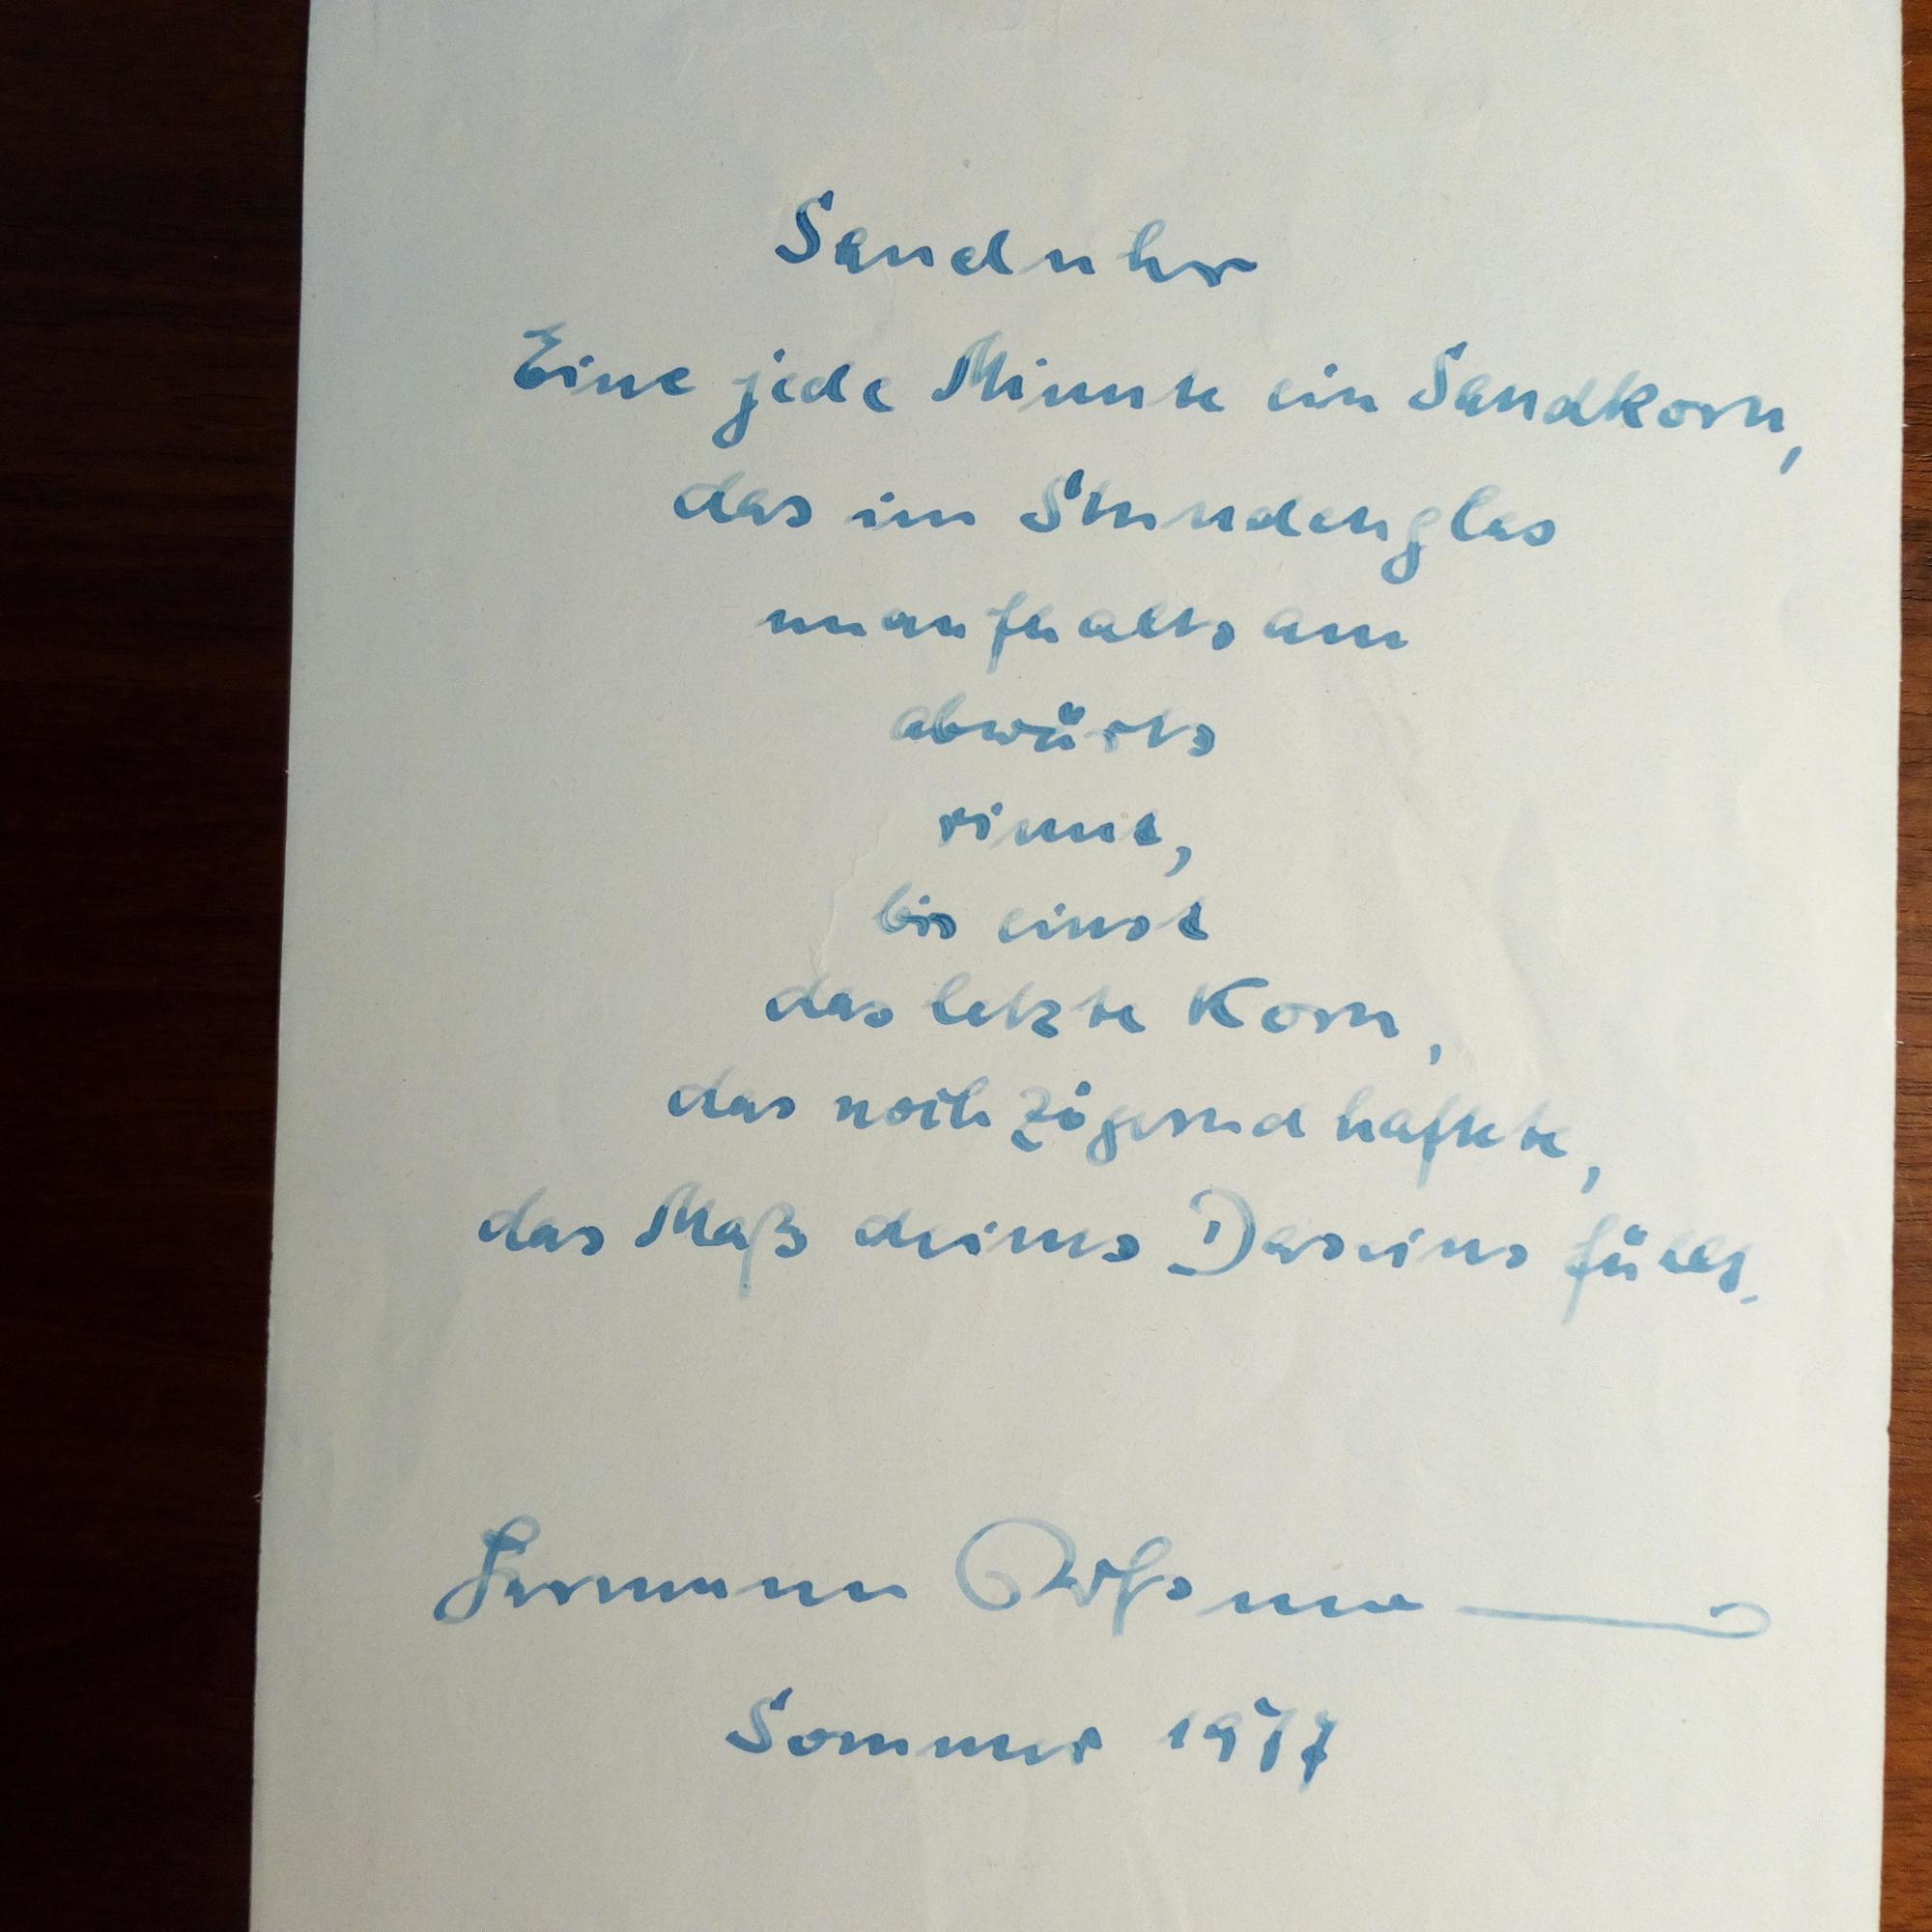 Sanduhr
Eine jede Minute ein Sandkorn,
das im Stundenglas
unaufhaltsam
abwärts
rinnt,
bis einst
das letzte Korn,
das noch zögernd haftete,
das Maß deines Daseins füllt.
Hermann
Sommer 1977